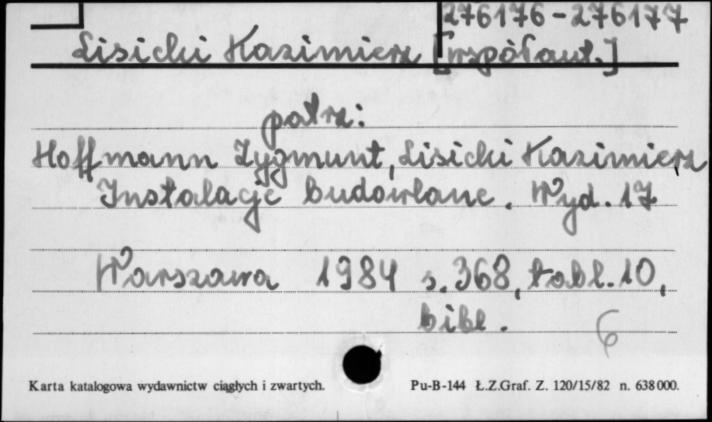 276176-276177
Lisicki Kazimierz [współaut.]
patrz:
Hoffmann Zygmunt, Lisicki Kazimierz
Instalacje budowlane. Wyd. 17
Warszawa 1984 s. 368, tabl. 10,
bibl.
6
Karta katalogowa wydawnictw ciągłych i zwartych. Pu-B-144 Ł.Z.Graf. Z. 120/15/82 n. 638 000.